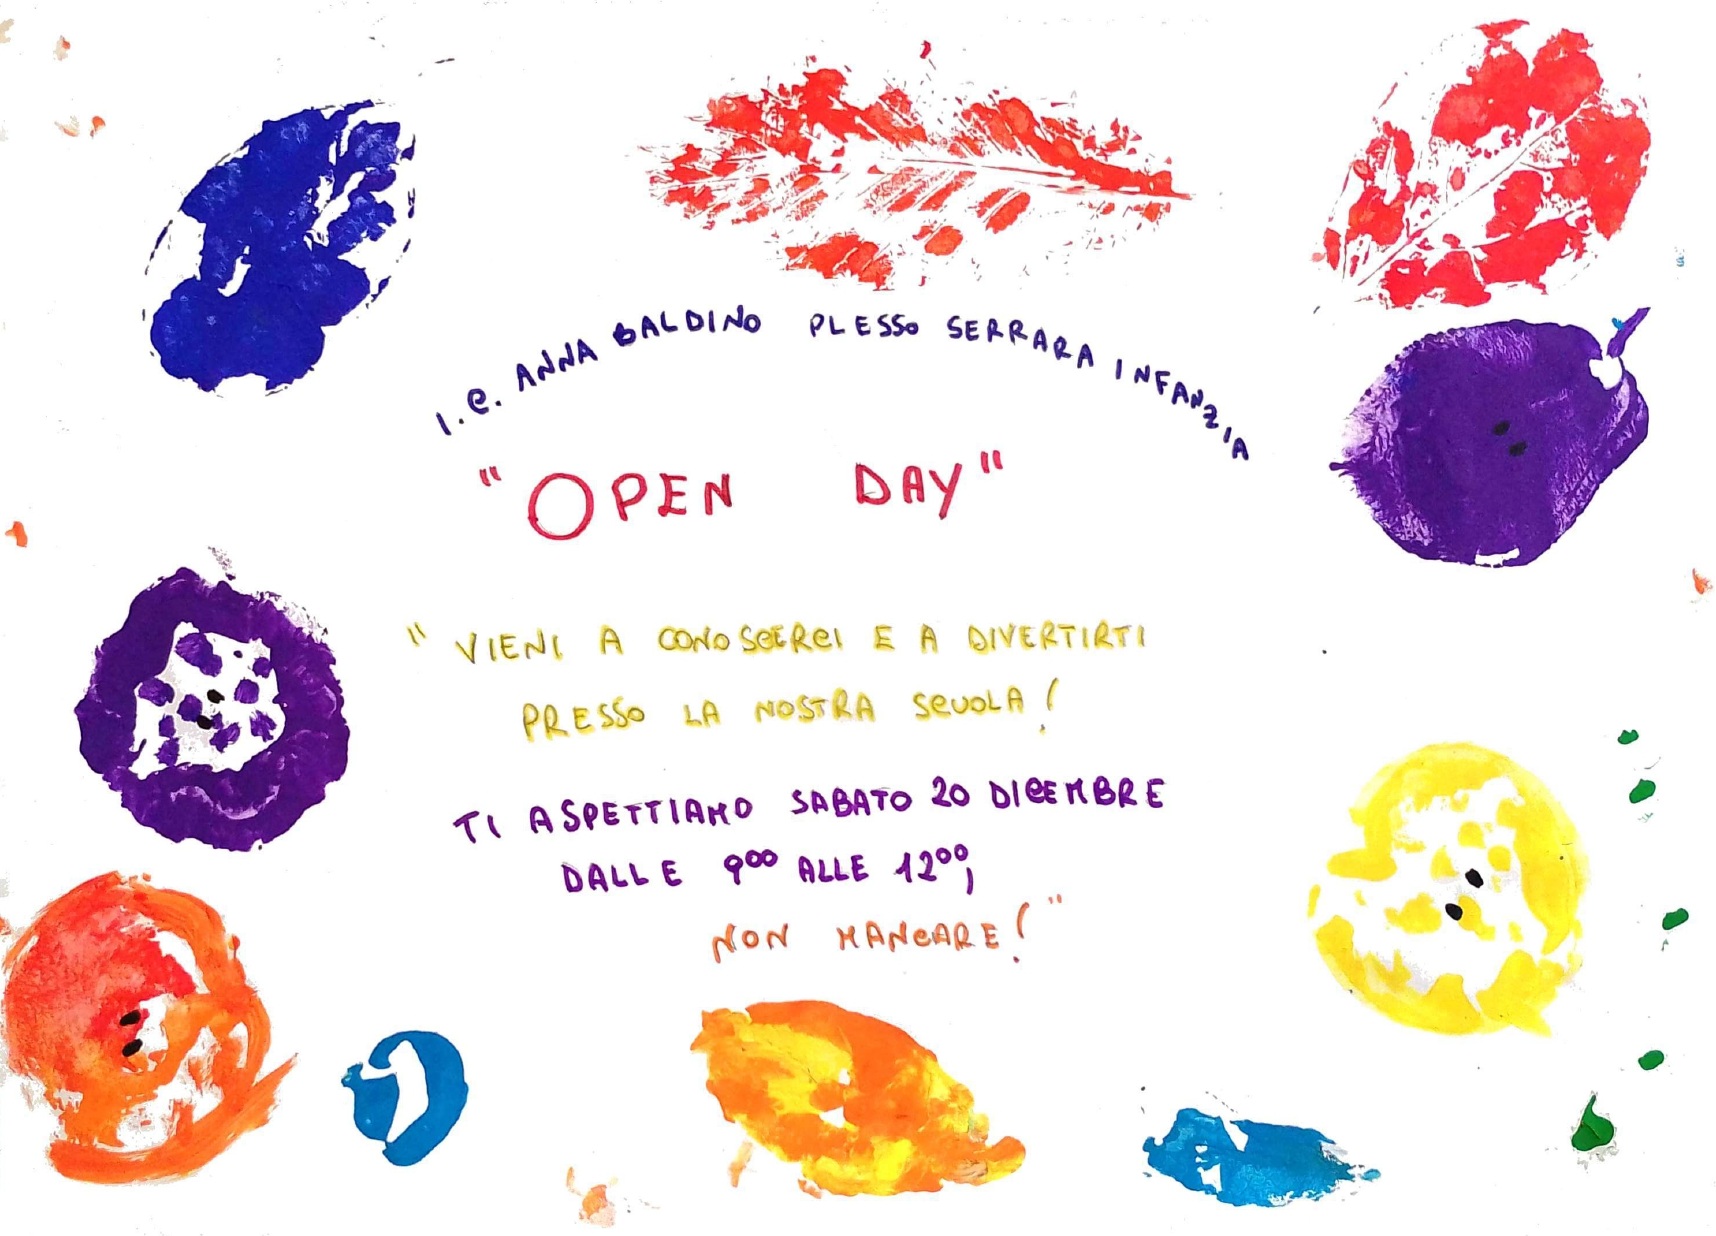 I.C. ANNA BALDINO PLESSO SERRARA INFANZIA
"OPEN DAY"
"VIENI A CONOSCERCI E A DIVERTIRTI
PRESSO LA NOSTRA SCUOLA!
TI ASPETTIAMO SABATO 20 DICEMBRE
DALLE 9⁰⁰ ALLE 12⁰⁰,
NON MANCARE!"